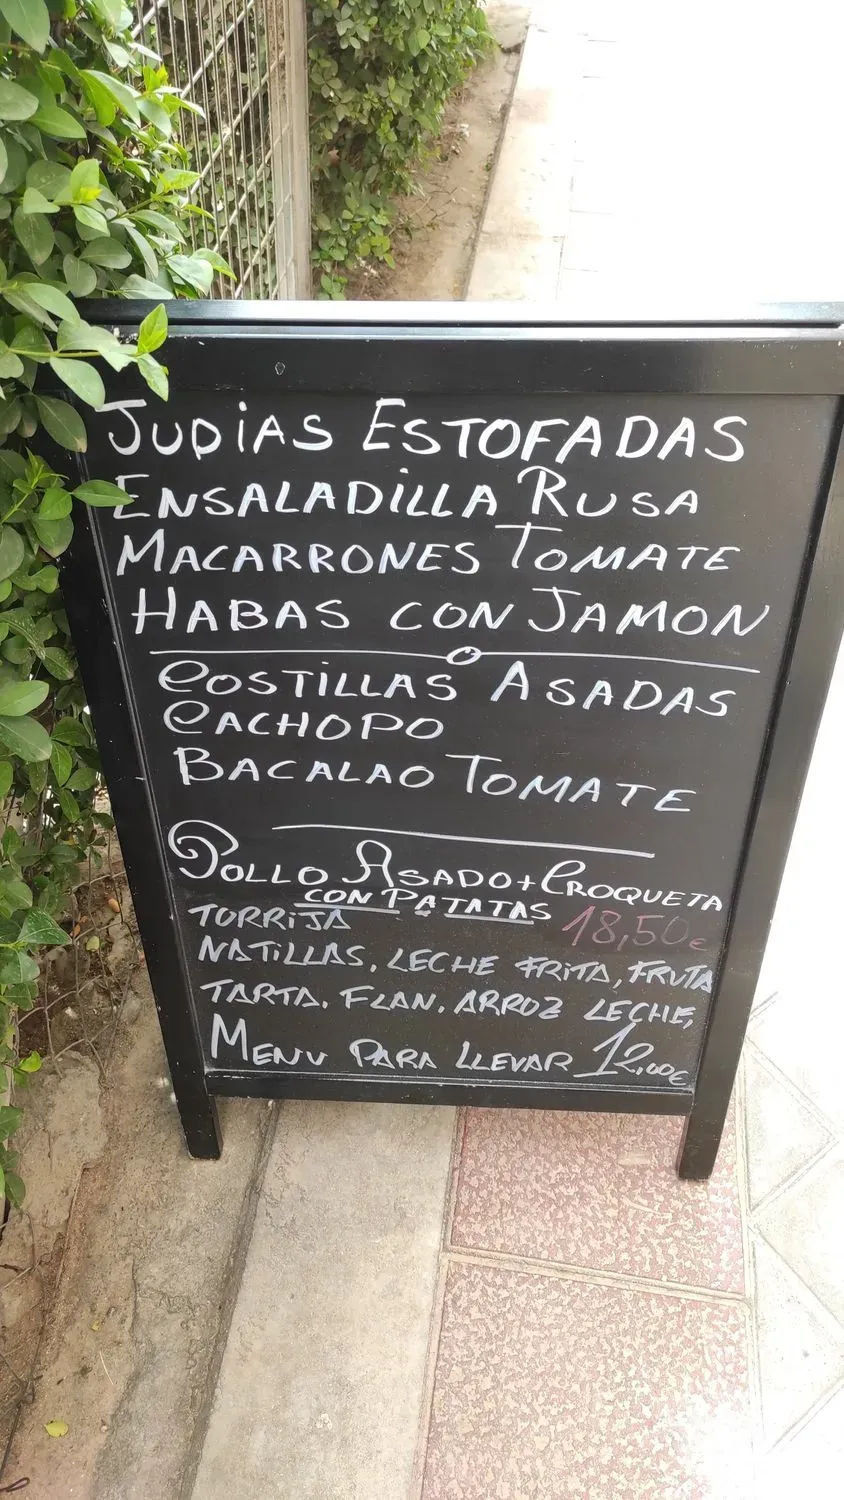 JUDIAS ESTOFADAS
ENSALADILLA RUSA
MACARRONES TOMATE
HABAS CON JAMON
COSTILLAS ASADAS
CACHOPO
BACALAO TOMATE
POLLO ASADO + CROQUETA
CON PATATAS
TORRIJA 18,50€
NATILLAS, LECHE FRITA, FRUTA
TARTA, FLAN, ARROZ LECHE,
MENU PARA LLEVAR 12,00€